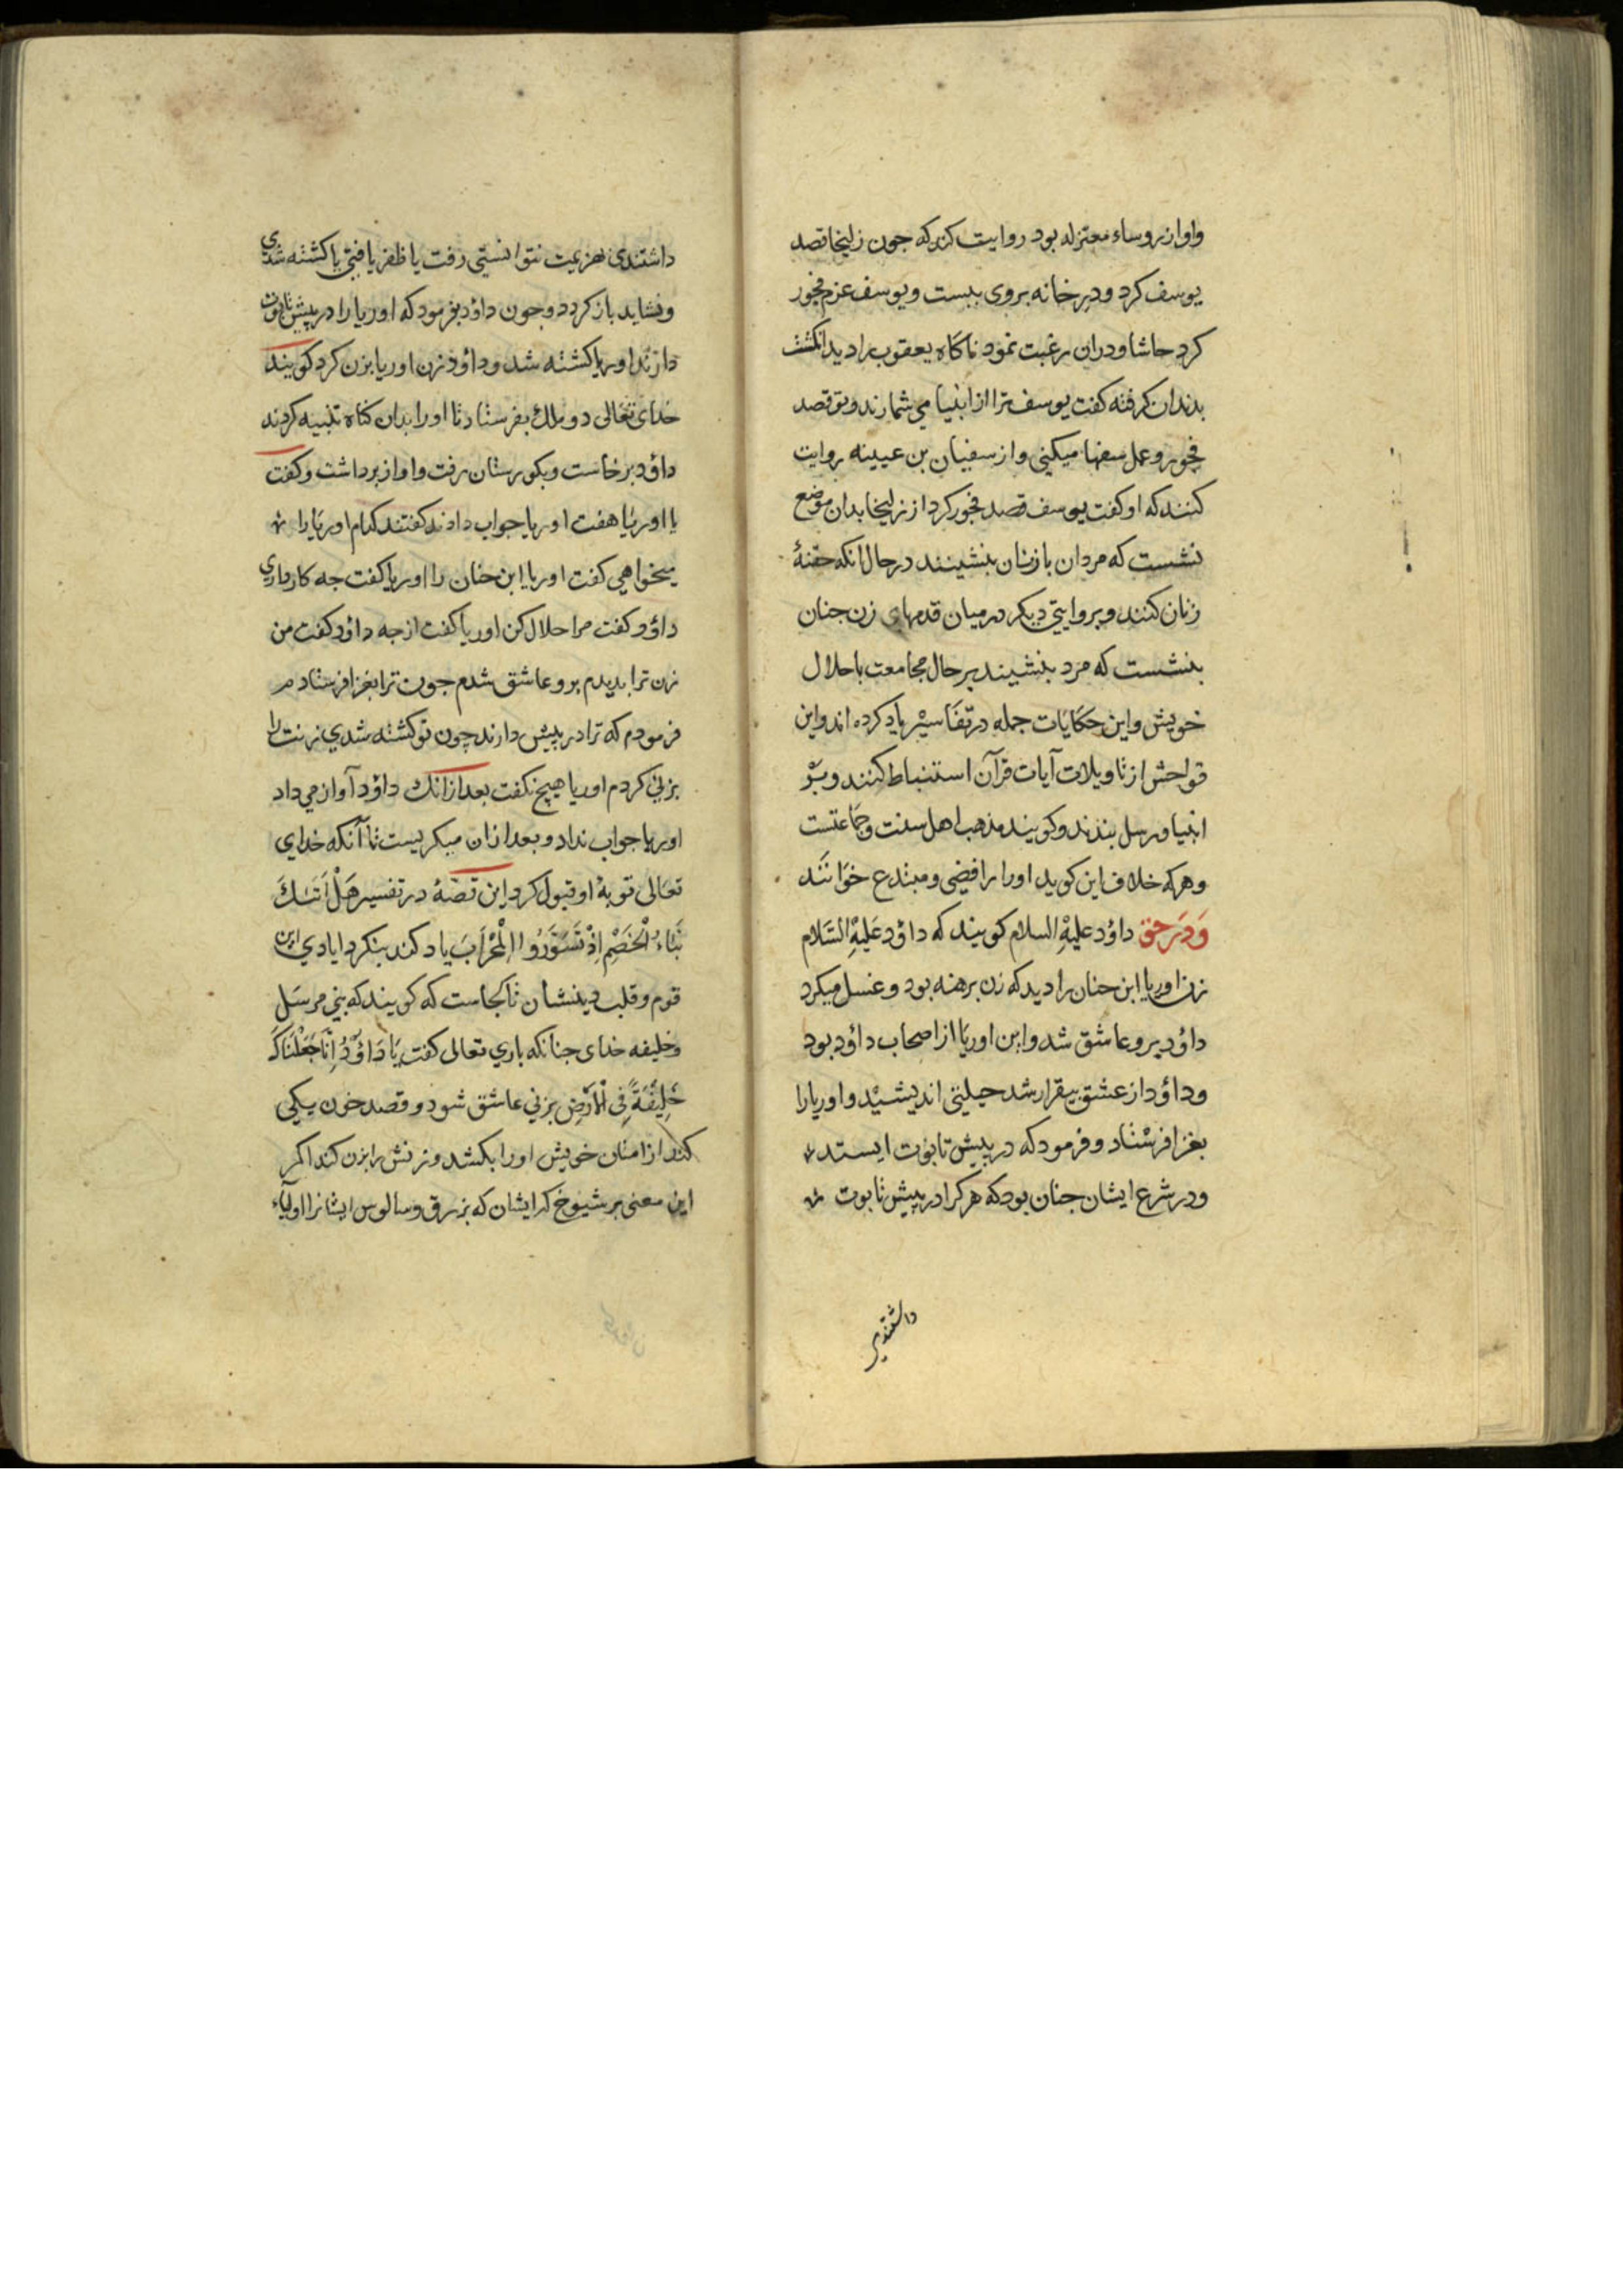 واو از روساء معتزله بود روایت کند که جون زلیخا قصد
یوسف کرد و در خانه بروی ببست و یوسف عزم فجور
کرد حاشا و دران رغبت نمود ناکاه یعقوب را دید انکشت
بدندان کرفته کفت یوسف ترا از انبیا می شمارند و تو قصد
فجور و عمل سفها میکنی و از سفیان بن عیینه روایت
کنند که او کفت یوسف قصد فجور کرد از زلیخا بدان موضع
نشست که مردان بازنان بنشینند در حال انکه حقنۀ
زنان کنند و بروایتی دیکر در میان قدمهای زن جنان
بنشست که مرد بنشیند بر حال مجامعت با حلال
خویش و این حکایات جمله در تفاسیر یاد کرده اند و این
فواحش از تاویلات آیات قرآن استنباط کنند و بر
انبیا و رسل بندند و کویند مذهب اهل سنت و جماعتست
و هر که خلاف این کوید اورا رافضی و مبتدع خوانند
وَدَر حَق داؤد علیهِ السلام کویند که داؤد عَلیهِ السَلام
زن اوریا ابن حنان را دید که زن برهنه بود و غسل میکرد
داؤد برو عاشق شد و این اوریا از اصحاب داؤد بود
و داؤد از عشق بیقرار شد حیلتی اندیشید و اوریا را
بغزا فرستاد و فرمود که در پیش تابوت ایستد
و در شرع ایشان جنان بود که هر کرا در پیش تابوت
داشتندی
داشتندی بهزیمت نتوانستی رفت یا ظفر یافتی یا کشته شدی
و نشاید باز کردد و جون داؤد بفرمود که اوریا را در پیش تابوت
دارند اوریا کشته شد و داؤد زن اوریا بزن کرد کویند
خدای تعالی دو ملک بفرستاد تا اورا بدان کناه تنبیه کردند
داؤد برخاست و بکورستان رفت و اواز برداشت و کفت
یا اوریا هفت اوریا جواب دادند کفتند کدام اوریا را
میخواهی کفت اوریا ابن حنان را اوریا کفت جه کار داری
داؤد کفت مرا حلال کن اوریا کفت از جه داؤد کفت من
زن ترا بدیدم برو عاشق شدم جون ترا بغزا فرستادم
فرمودم که ترا در پیش دارند چون تو کشته شدی زنت را
بزنی کردم اوریا هیچ نکفت بعد از انک داؤد آواز می داد
اوریا جواب نداد و بعد ازان میکریست تا آنکه خدای
تعالی توبهٔ او قبول کرد این قصّهٔ در تفسیر هَلْ اَتٰكَ
نَبَاءُ الْخَصْمِ اِذْ تَسَوَّرُوا الْمِحْرَابَ یاد کند بنکرد ایادی این
قوم و قلب دینشان تا کجاست که کویند که نبی مرسَل
و خلیفه خدای جنانکه باری تعالی کفت يَا دَاوُدُ اِنَّا جَعَلْنَاكَ
خَلِيفَةً فِى الْاَرْضِ بزنی عاشق شود و قصد خون یکی
کند از امتان خویش اورا بکشد و زنش را بزن کند اکر
این معنی بر شیوخ کر ایشان که بزرق و سالوس ایشانرا اولیاء